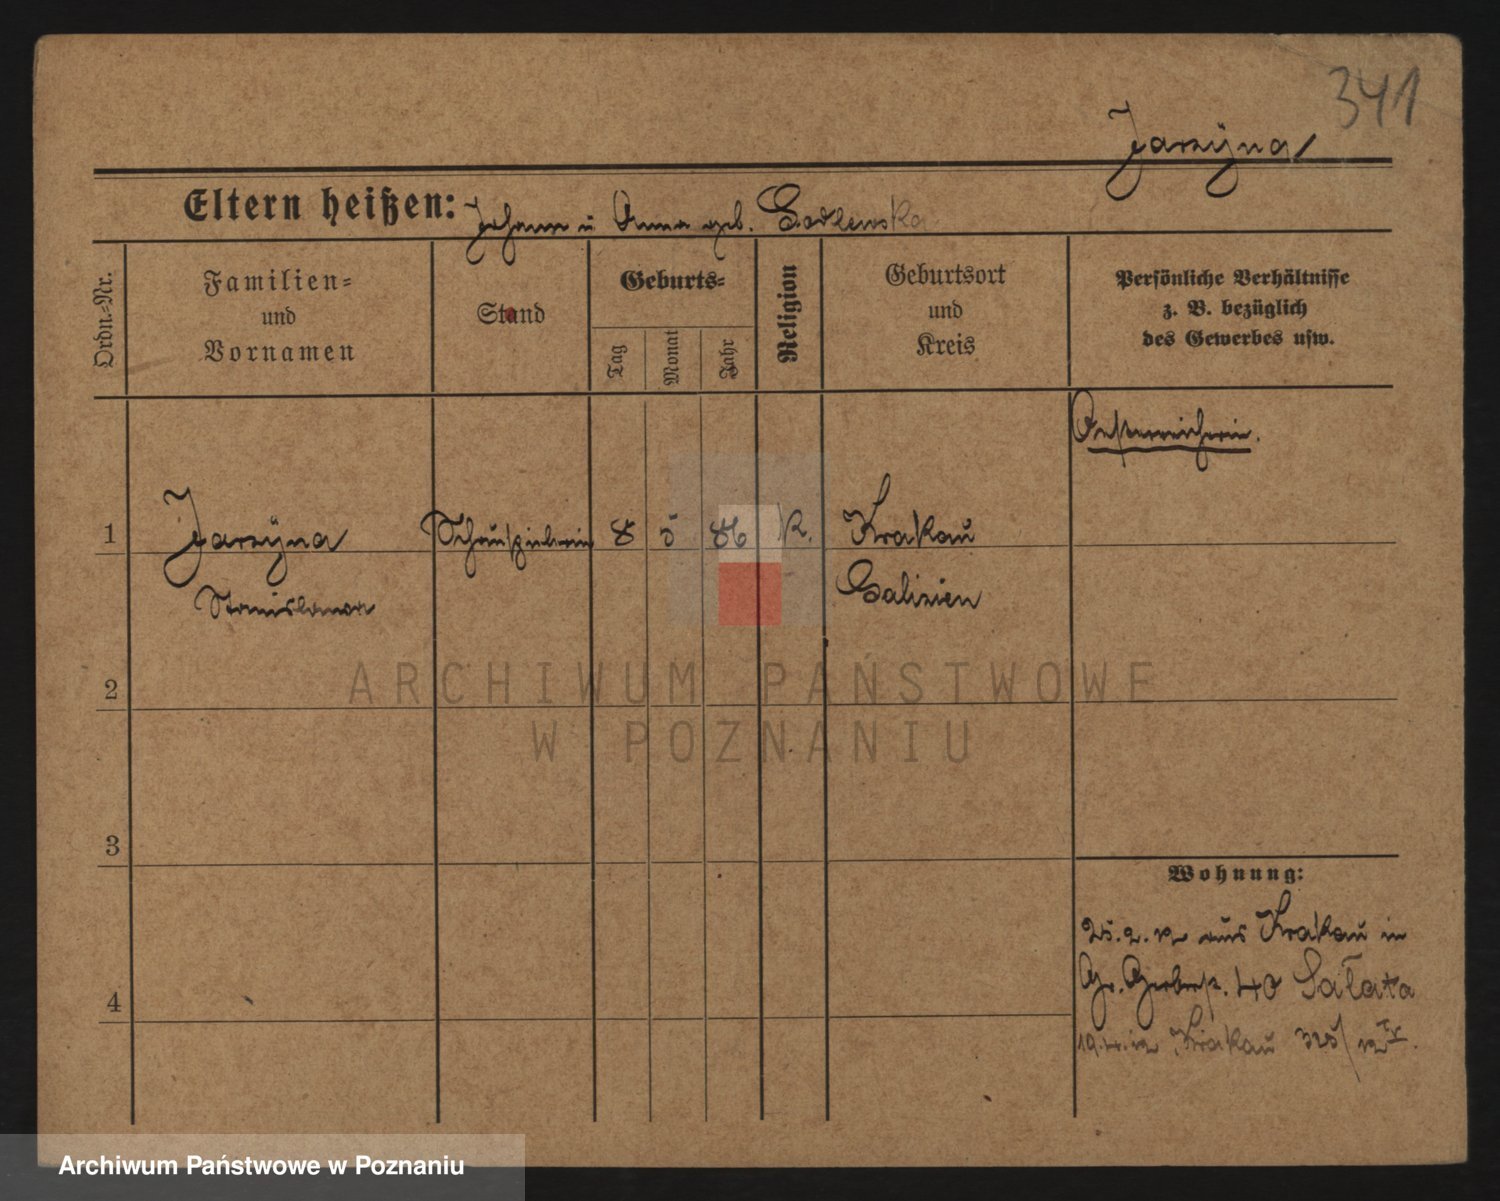 341
Jarzÿna
Eltern heißen: Johann u Anna geb. Sadlewska
Ordn.-Nr.
Familien- und Vornamen
Stand
Geburts-
Tag
Monat
Jahr
Religion
Geburtsort und Kreis
Persönliche Verhältnisse
z. B. bezüglich
des Gewerbes usw.
Oesterreicherin.
1 Jarzÿna Schauspielerin 8 5 86 K. Krakau
Stanislawa Galizien
2
3
4
Wohnung:
25.2.12 aus Krakau in
Gr. Gerberstr. 40 Sałata
Krakau
ARCHIWUM PAŃSTWOWE
W POZNANIU
Archiwum Państwowe w Poznaniu